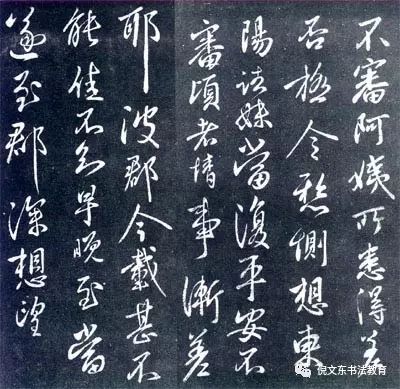 不審阿姨所患得差
否極令懸惻想東
陽諸妹當復平安不
審頃者情事漸差
耶彼郡今載甚不
能佳不知早晚至當
遂至郡深想望
倪文东书法教育